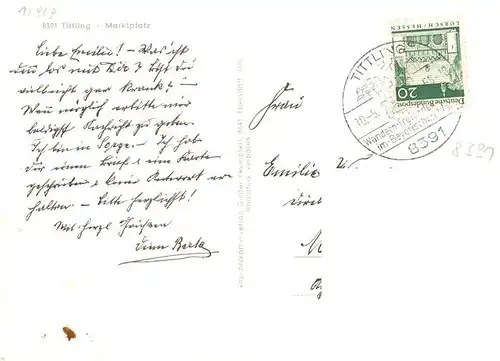 8391 Tittling - Marktplatz
Liebe Emilie! - Was ist
denn los mit Dir? Bist Du
vielleicht gar krank? -
Wenn möglich erbitte mir
baldigst Nachricht zu geben.
Ich bin in Sorge. - Ich hab
Dir einen Brief & eine Karte
geschrieben & keine Antwort er
halten. - Bitte herzlichst!
Mit herzl. Grüssen
Deine Berta
Frau
Emilie
LORSCH/HESSEN
Deutsche Bundespost
20
TITTLING
8391
8391